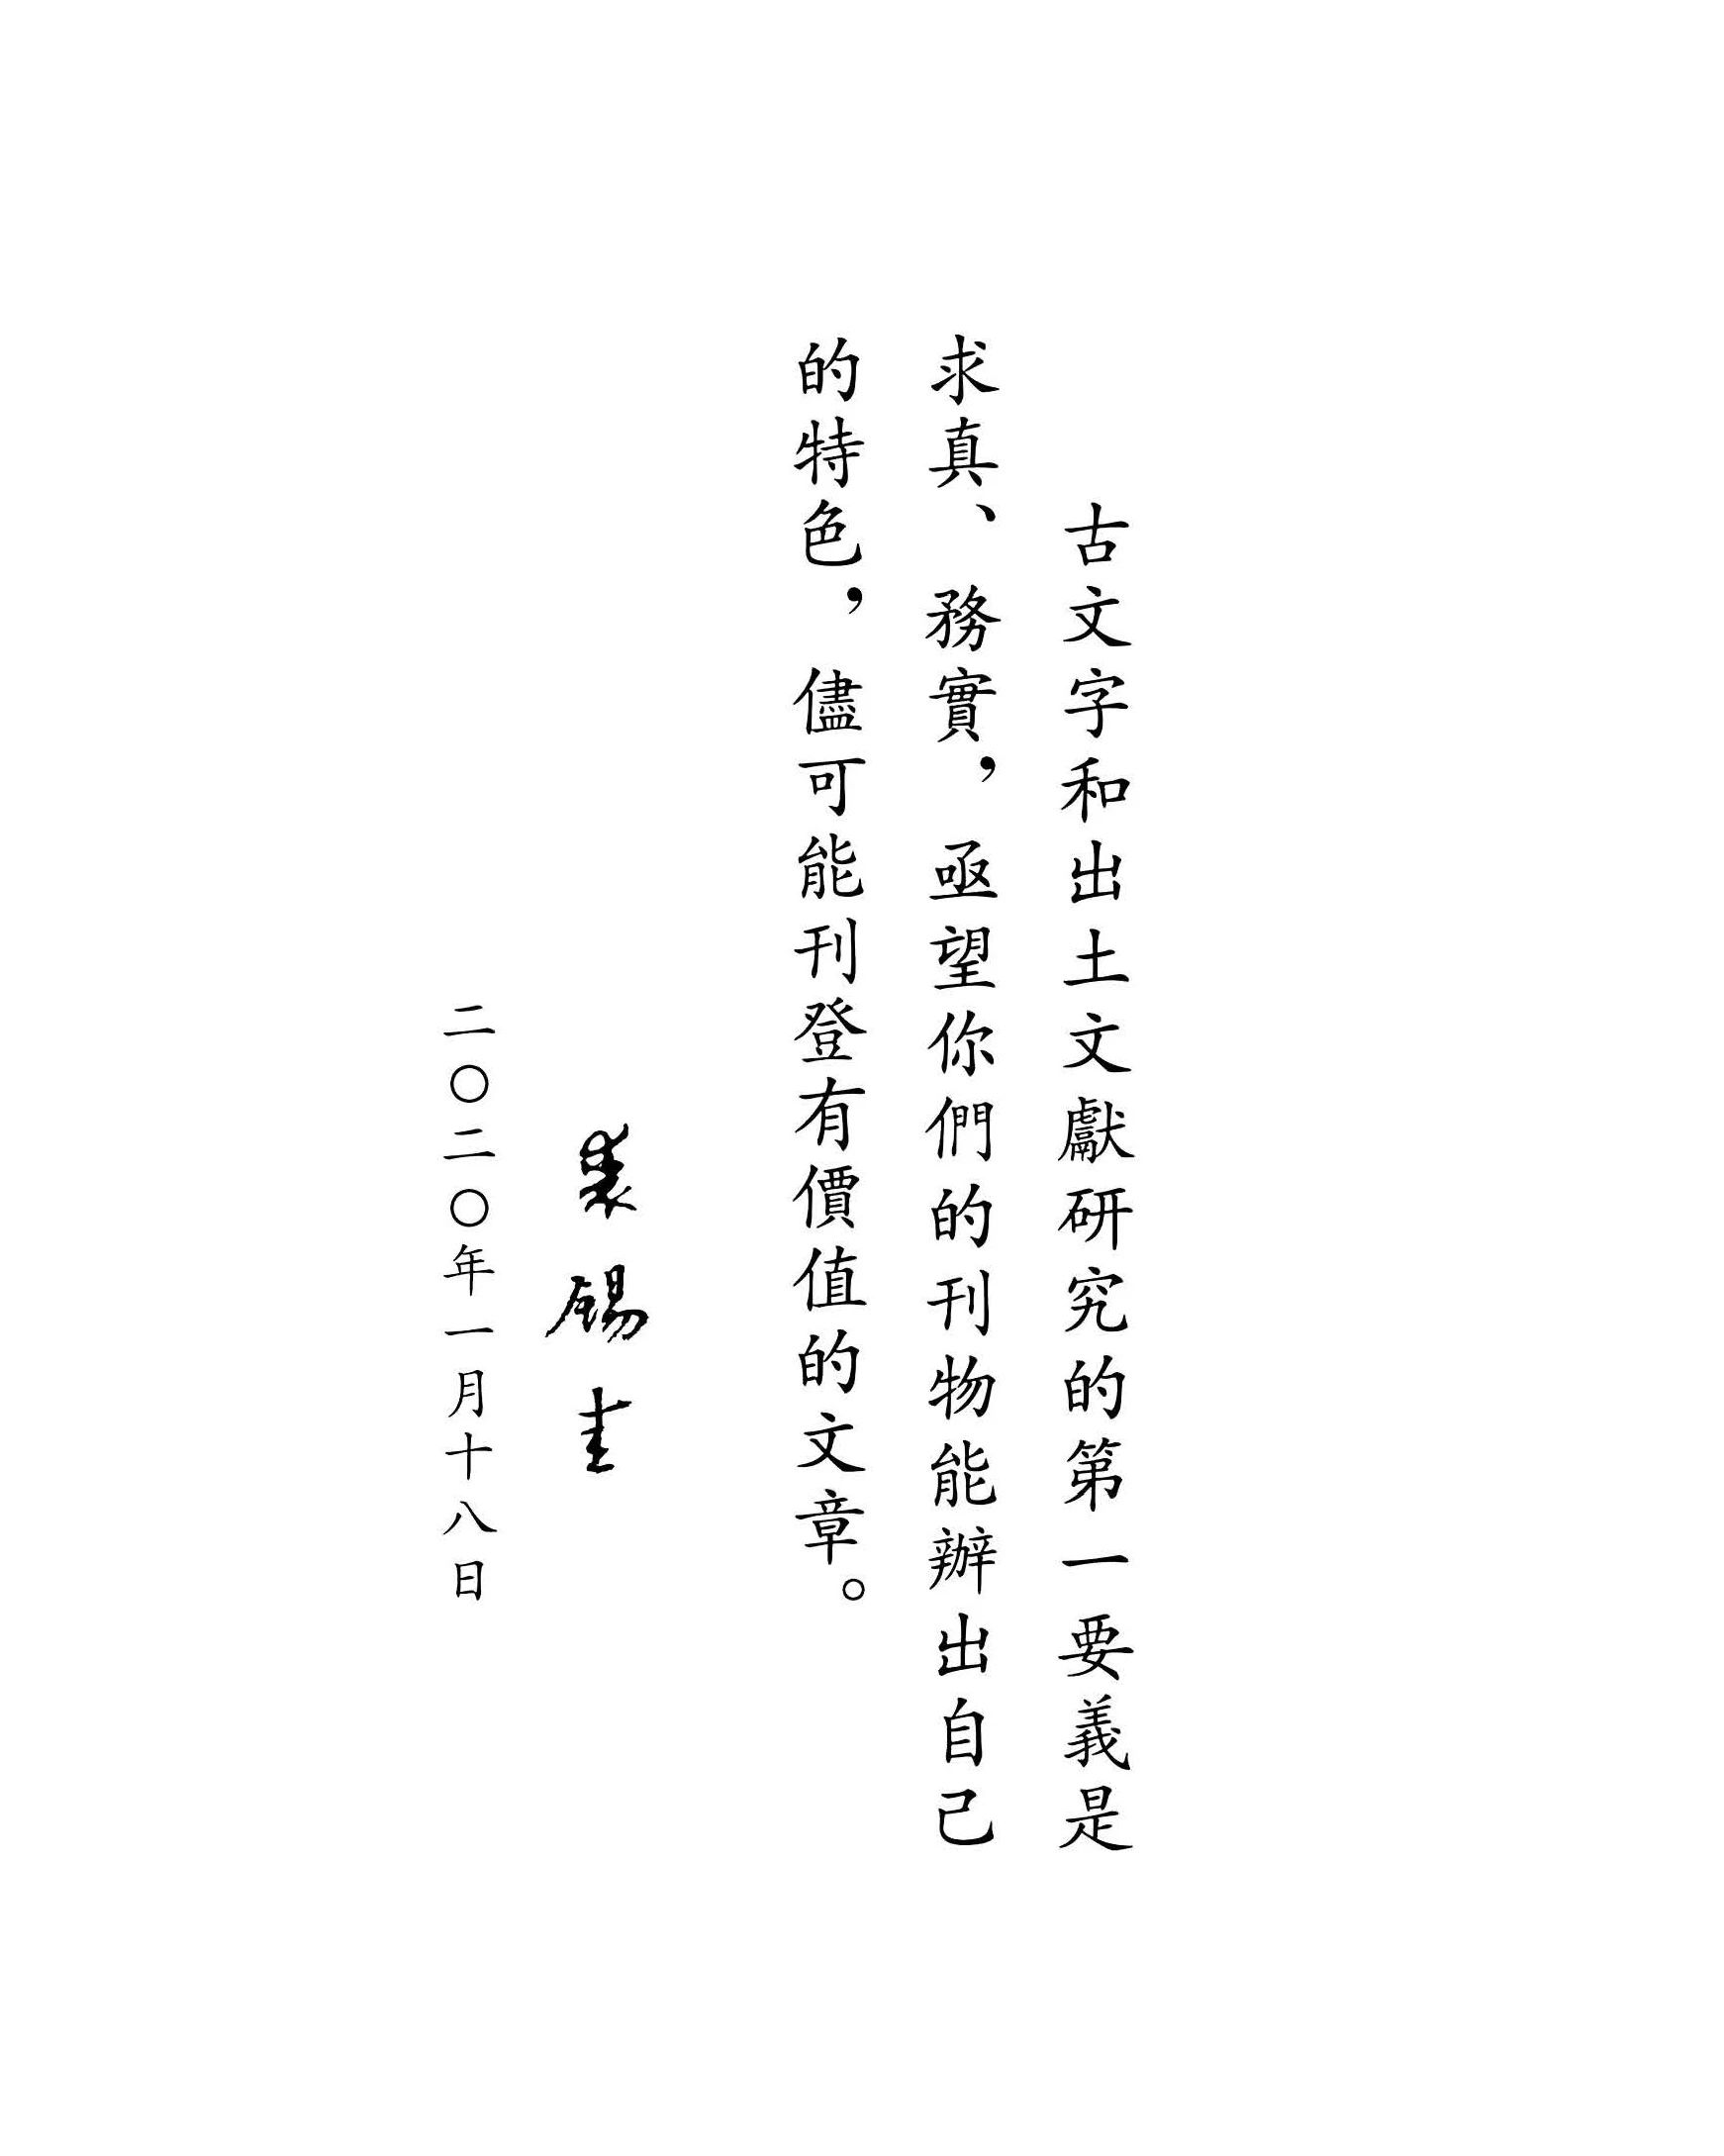 古文字和出土文獻研究的第一要義是
求真、務實，亟望你們的刊物能辦出自己
的特色，儘可能刊登有價值的文章。
裘錫圭
二〇二〇年一月十八日